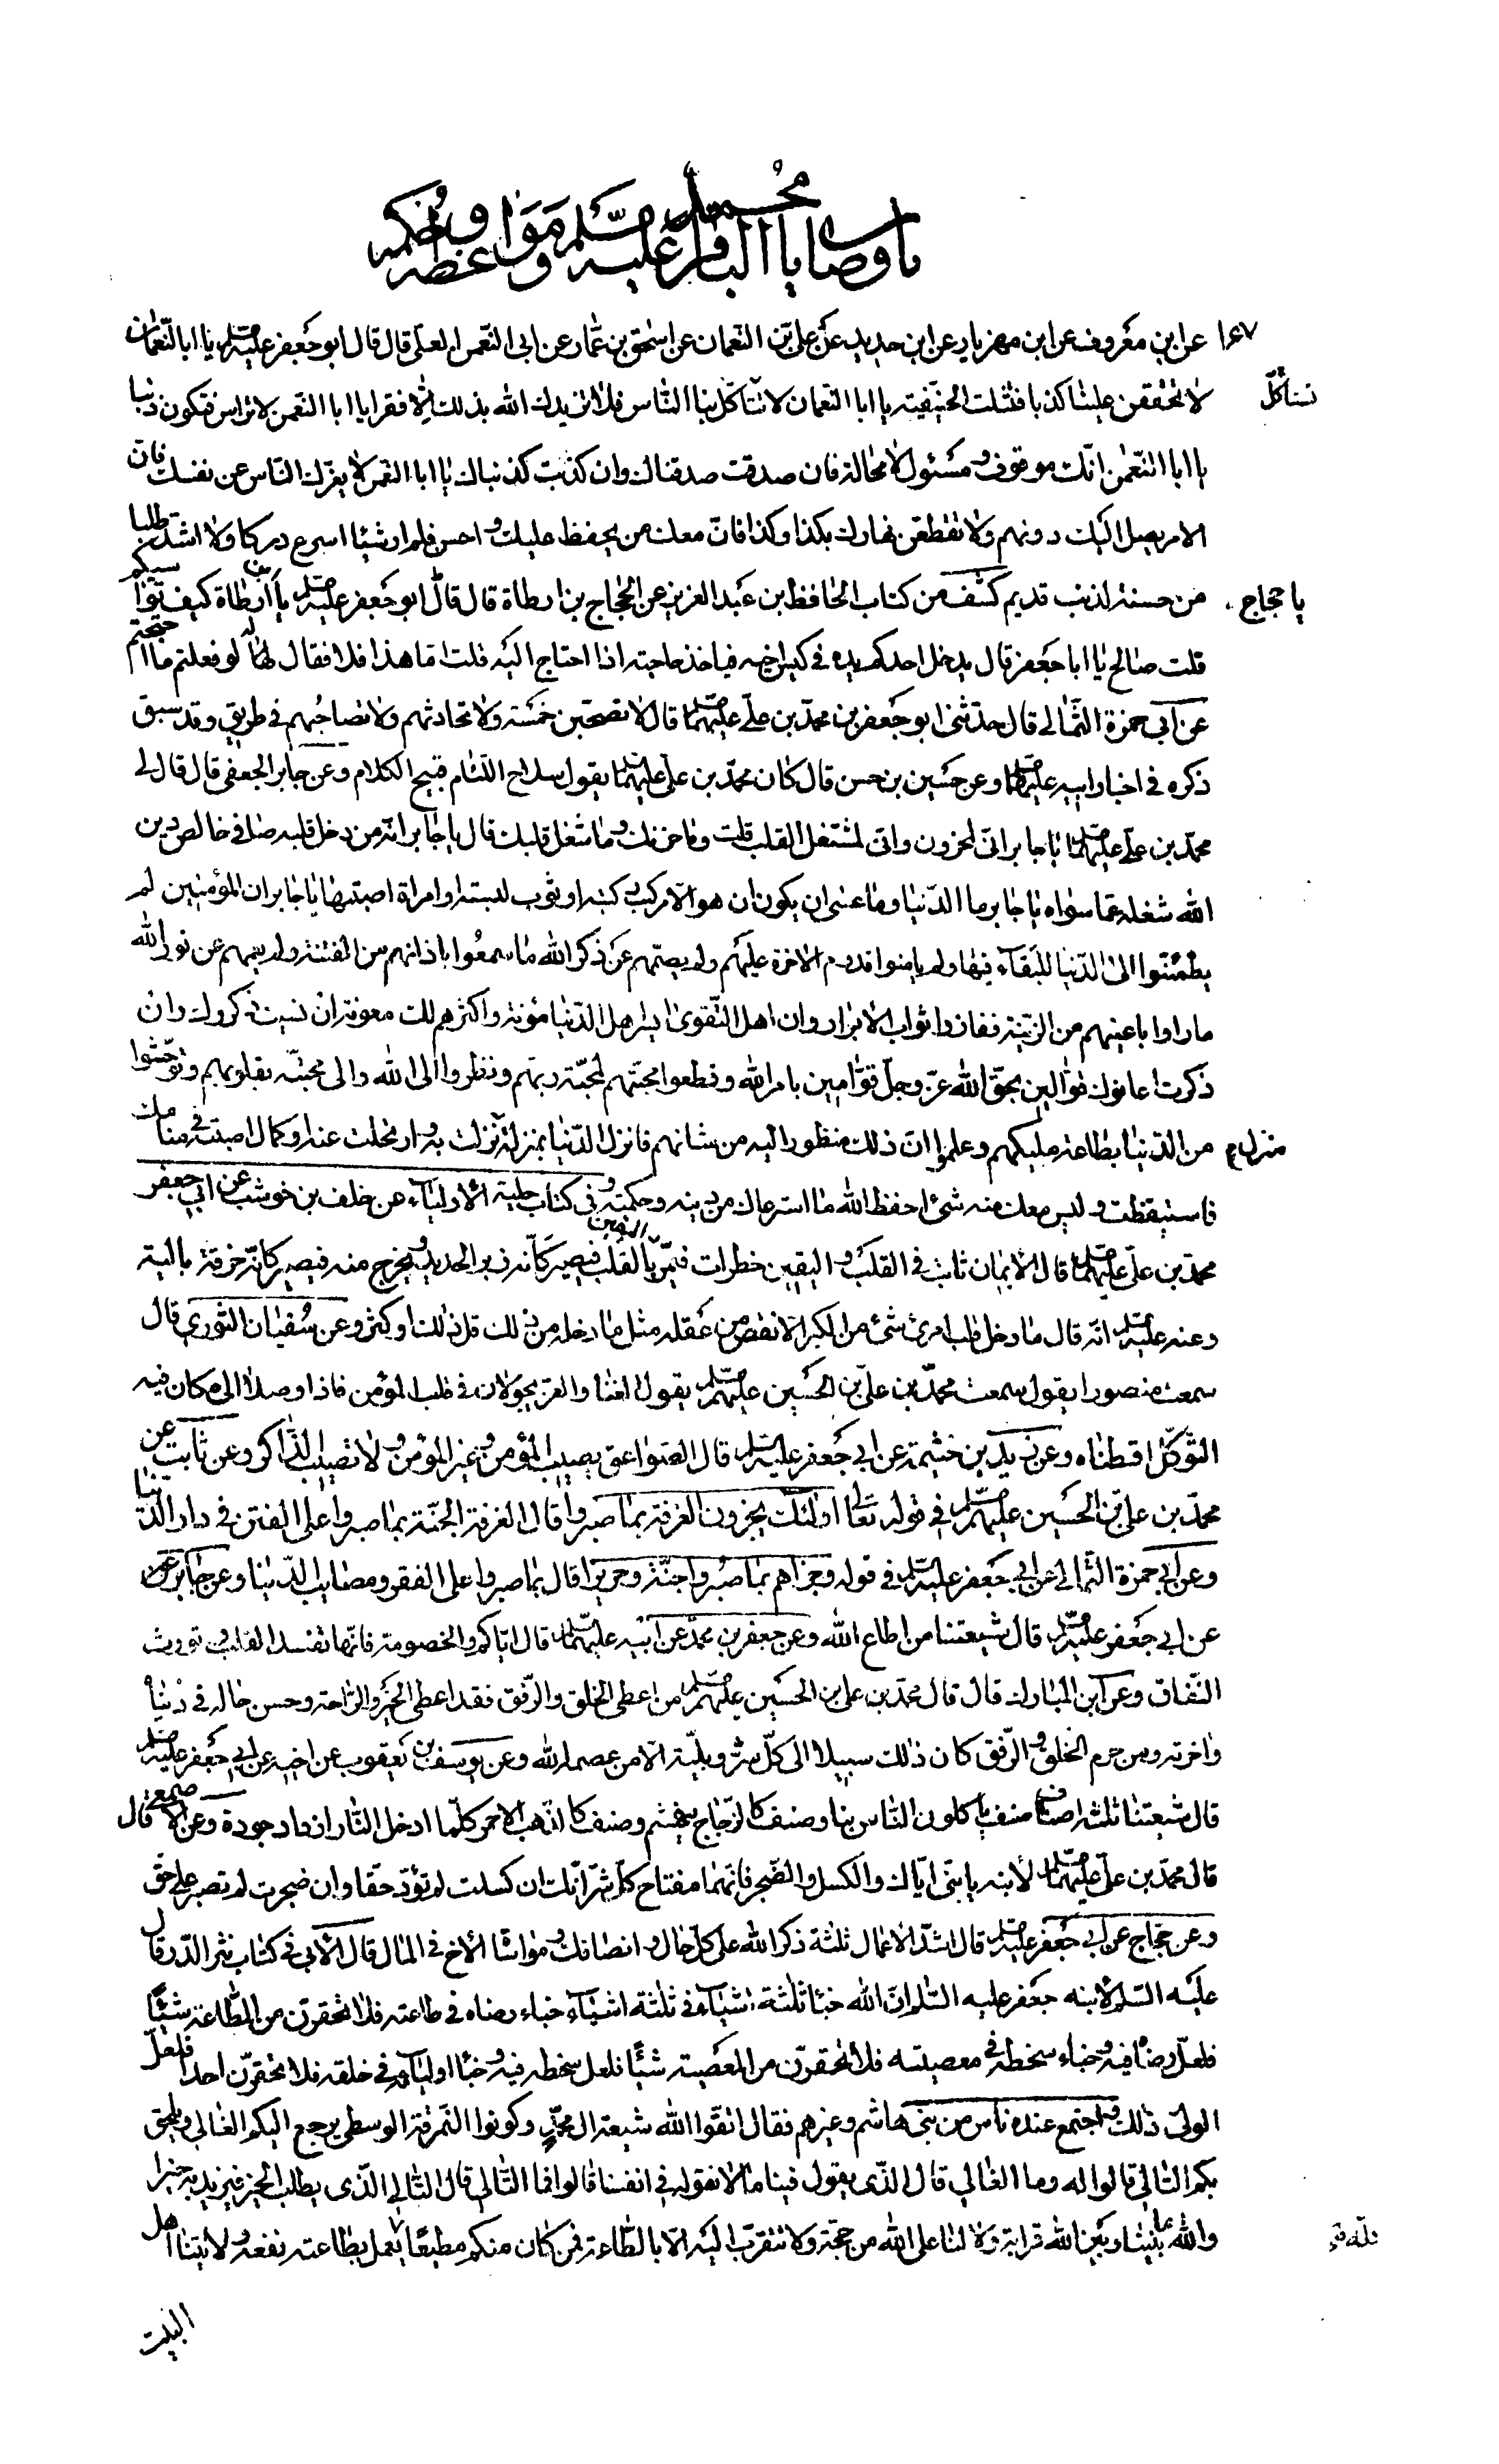 باب وصايا محمد الباقر صلّى الله عليه وسلّم ومواعظه وحكمه
عن ابن معروف عن ابن مهزيار عن ابن حديد عن علي بن النعمان عن اسحق بن عمار عن ابي النّعمن العجلي قال قال ابو جعفر عليه يا ابا النّعمان
لا تحققن علينا كذبا فتسلب الحنيفية يا ابا النعمان لا تتاكل بنا النّاس فلا يزيدك الله بذلك الّا فقرا يا ابا النعمن لا تراس فتكون ذنبا
تستاكل
يا ابا النّعمن انّك موقوف ومسئول لا محالة فان صدقت صدقناك وان كذبت كذبناك يا ابا النعمن لا يغرّك النّاس عن نفسك فانّ
الامر يصل اليك دونهم ولا تقطعن نهارك بكذا وكذا فانّ معك من يحفظ عليك واحسن فلم ار شيئا اسرع دركا ولا اشدّ طلبا
من حسنة لذنب قديم كشف من كتاب الحافظ بن عبد العزيز عن الحجّاج بن ارطاة قال قال ابو جعفر عليه يا بن ارطاة كيف تواسيكم
يا حجاج
قلت صالح يا ابا جعفر قال يدخل احدكم يده في كيس اخيه فياخذ حاجته اذا احتاج اليه قلت امّا هذا فلا فقال له لو فعلتم ما احتجتم
عن ابي حمزة الثّمالي قال حدّثني ابو جعفر بن محمّد بن علي عليهما قال لا تصحبن خمسة ولا تحادثهم ولا تصاحبهم في طريق وقد سبق
ذكره في اخبار ابيه عليهما وعن حسين بن حسن قال كان محمّد بن علي عليهما يقول سلاح اللّئام قبيح الكلام وعن جابر الجعفي قال قال لي
محمّد بن علي عليهما يا جابر انّي لمحزون وانّي لمشتغل القلب قلت وما حزنك وما شغل قلبك قال يا جابر انّه من دخل قلبه صافي خالص دين
الله شغله عمّا سواه يا جابر ما الدّنيا وما عسى ان يكون ان هو الّا مركب ركبته او ثوب لبسته او امراة اصبتها يا جابر ان المؤمنين لم
يطمئنّوا الى الدّنيا للبقاء فيها ولم يامنوا قدوم الاخرة عليهم ولم يصمّهم عن ذكر الله ما سمعوا باذانهم من الفتنة ولم يعمهم عن نور الله
ما راوا باعينهم من الزّينة ففازوا ثواب الابرار وان اهل التّقوى ايسر اهل الدّنيا مؤنة واكثرهم لك معونة ان نسيت ذكروك وان
ذكرت اعانوك قوّالين بحقّ الله عزّ وجلّ قوّامين بامر الله وقطعوا محبّتهم لمحبّة ربّهم ونظروا الى الله والى محبّته بقلوبهم وتوحّشوا
من الدّنيا بطاعة مليكهم وعلموا انّ ذلك منظور اليه من شانهم فانزل الدّنيا بمنزلة نزلت به وارتحلت عنه او كمال اصبته في منامك
منزل
فاستيقظت وليس معك منه شيء احفظ الله ما استرعاك من دينه وحكمته وفي كتاب حلية الاولياء عن خلف بن حوشب عن ابي جعفر
محمّد بن علي عليهما قال الايمان ثابت في القلب واليقين خطرات فيمرّ اليقين بالقلب فيصير كانّه زبر الحديد ويخرج منه فيصير كانّه خرقة بالية
وعنه عليه انّه قال ما دخل قلب امرئ شيء من الكبر الّا نقص من عقله مثل ما دخله من ذلك قلّ ذلك او كثر وعن سفيان الثوري قال
سمعت منصورا يقول سمعت محمّد بن علي بن الحسين عليهم يقول الغنا والعزّ يجولان في قلب المؤمن فاذا وصلا الى مكان فيه
التّوكّل اقطناه وعن زيد بن خيثمة عن ابي جعفر عليه قال الصّواعق يصيب المؤمن وغير المؤمن ولا تصيب الذّاكر وعن ثابت عن
محمّد بن علي بن الحسين عليهم في قوله تعالى اولئك يجزون الغرفة بما صبروا قال الغرفة الجنّة بما صبروا على الفتن في دار الدّنيا
وعن ابي حمزة الثّمالي عن ابي جعفر عليه في قوله وجزاهم بما صبروا جنّة وحريرا قال بما صبروا على الفقر ومصايب الدّنيا وعن جابر
عن ابي جعفر عليه قال شيعتنا من اطاع الله وعن جعفر بن محمّد عن ابيه عليهما قال ايّاكم والخصومة فانّها تفسد القلب وتورث
النّفاق وعن ابن المبارك قال قال محمّد بن علي بن الحسين عليهم من اعطى الخلق والرّفق فقد اعطى الخير والرّاحة وحسن حاله في دنياه
واخرته ومن حرم الخلق والرّفق كان ذلك سبيلا الى كلّ شرّ وبليّة الّا من عصمه الله وعن يوسف بن يعقوب عن اخيه عن ابي جعفر عليه
قال شيعتنا ثلثة اصناف صنف ياكلون النّاس بنا وصنف كالزّجاج يتهشّم وصنف كالذّهب الاحمر كلّما ادخل النّار ازداد جودة وعن الاصمعي قال
قال محمّد بن علي عليهما لابنه يا بنيّ ايّاك والكسل والضّجر فانّهما مفتاح كلّ شرّ انّك ان كسلت لم تؤدّ حقّا وان ضجرت لم تصبر على حق
وعن حجّاج عن ابي جعفر عليه قال اشدّ الاعمال ثلثة ذكر الله على كلّ حال وانصافك ومواساة الاخ في المال قال الآبي في كتاب نثر الدّرر قال
عليه السّلم لابنه جعفر عليه السّلم انّ الله خبّا ثلثة اشياء في ثلثة اشياء خباء رضاه في طاعته فلا تحقرنّ من الطّاعة شيئا
فلعلّ رضاه فيه وخباء سخطه في معصيته فلا تحقرنّ من المعصية شيئا فلعل سخطه فيه وخبّا اولياءه في خلقه فلا تحقرنّ احدا فلعلّ
الولي ذلك واجتمع عنده ناس من بني هاشم وغيرهم فقال اتّقوا الله شيعة ال محمّد وكونوا النّمرقة الوسطى يرجع اليكم الغالي ويلحق
بكم التّالي قالوا له وما الغالي قال الّذي يقول فينا ما لا نقوله في انفسنا قالوا فما التّالي قال التّالي الّذي يطلب الخير فيزيد به خيرا
والله ما بيننا وبين الله قرابة ولا لنا على الله من حجّة ولا نتقرّب اليه الّا بالطّاعة فمن كان منكم مطيعا يعمل بطاعته نفعته ولايتنا اهل
البيت